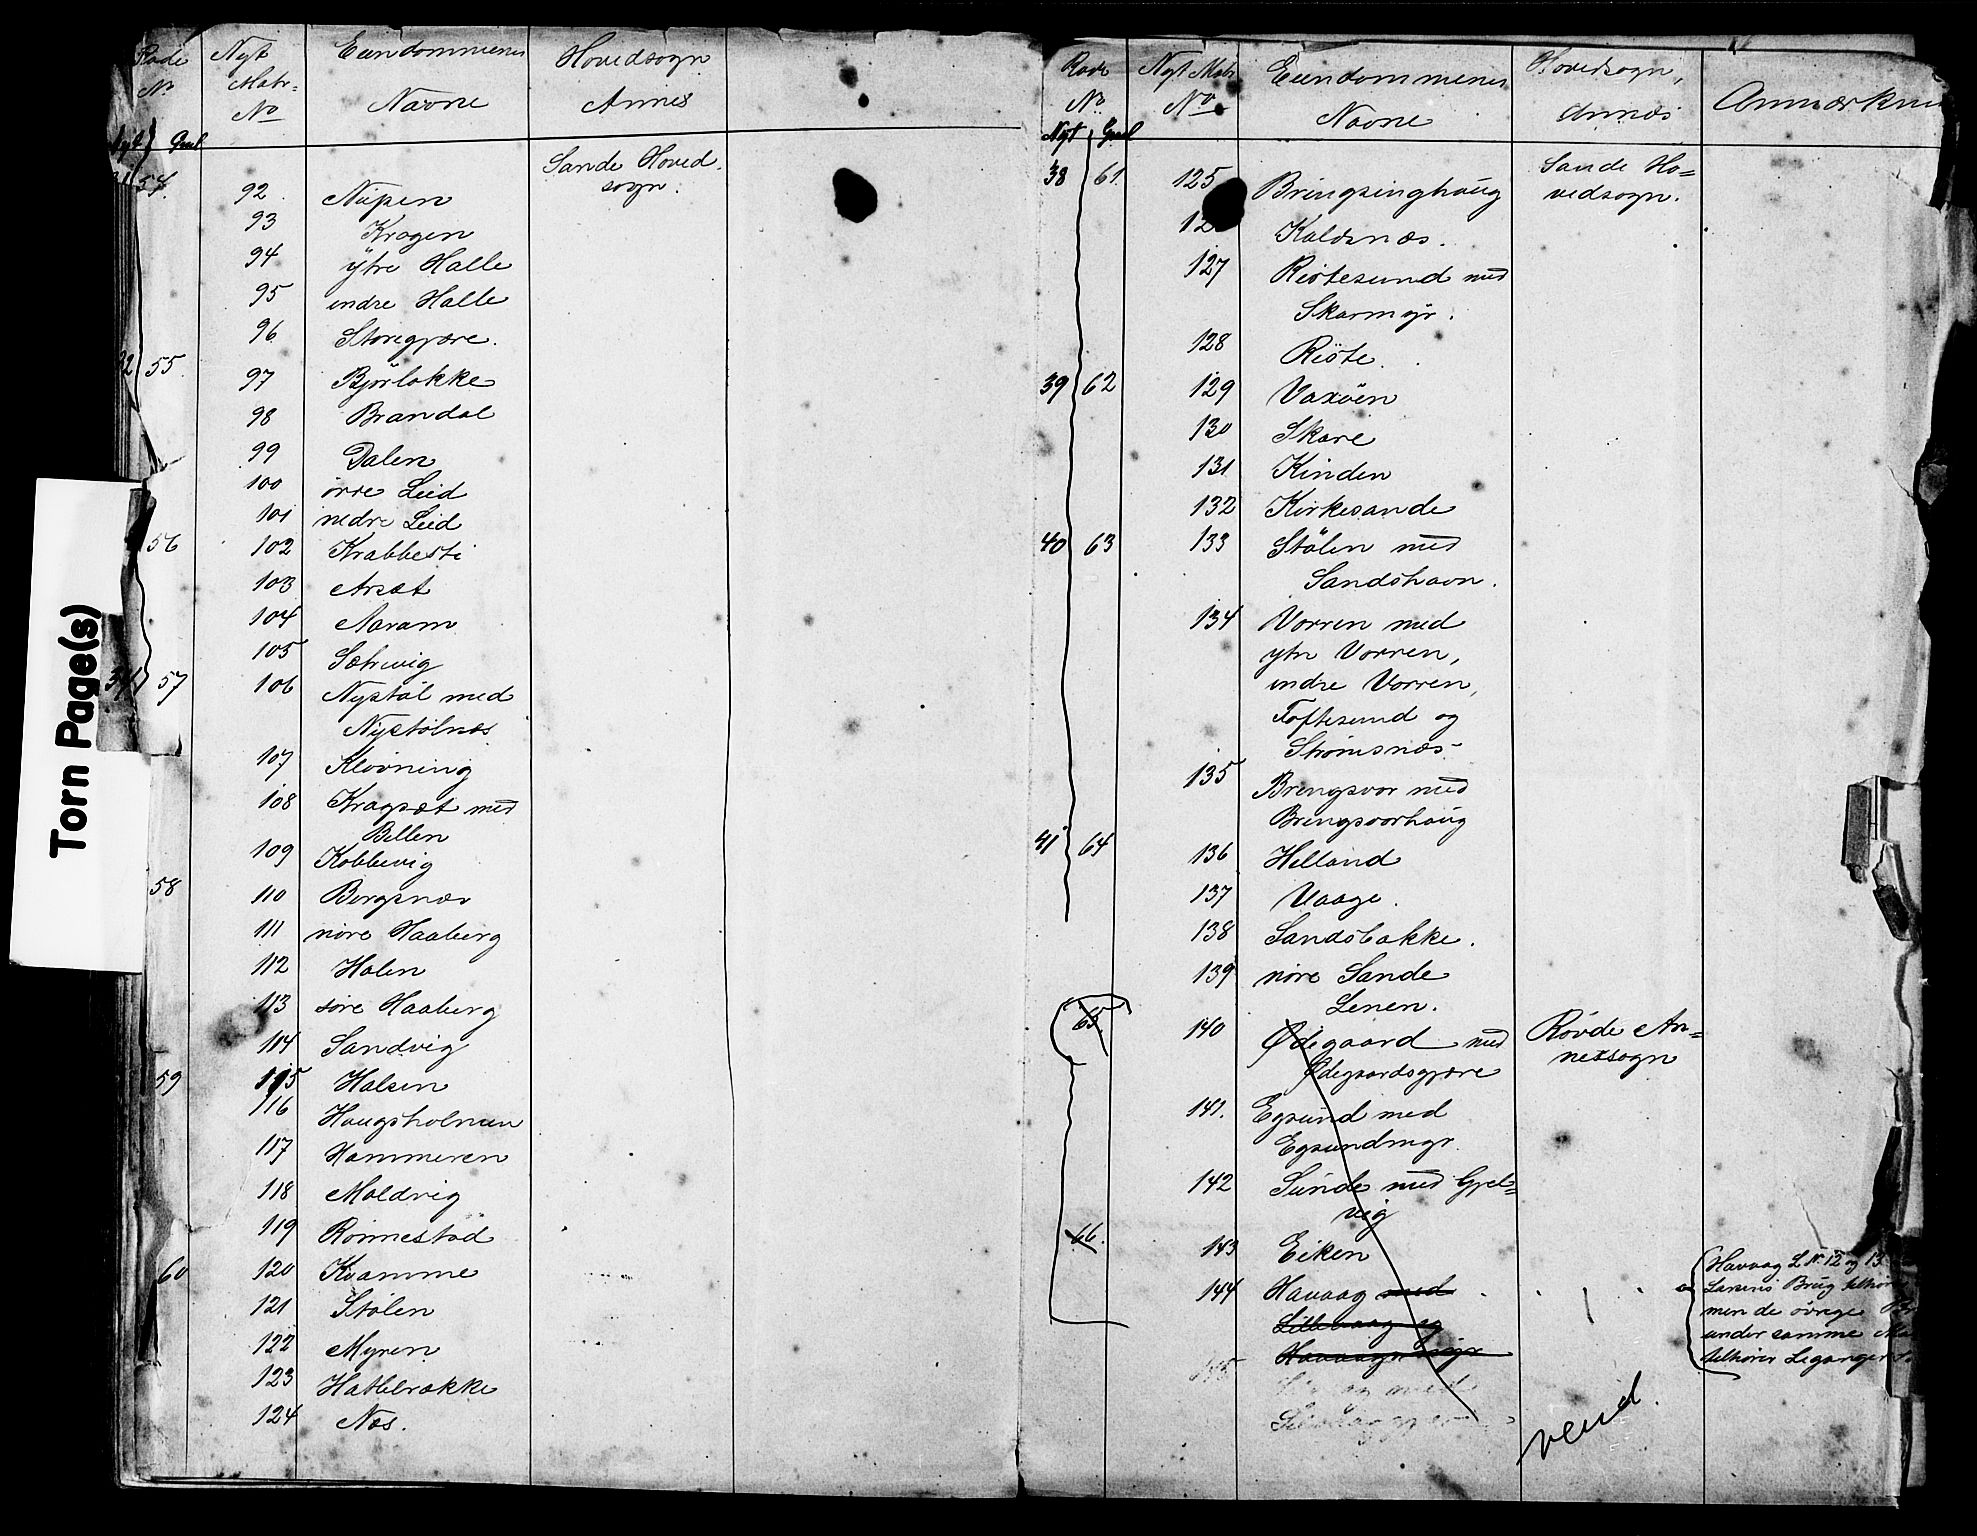 Rode Nyt Eiendommenes Hovedsogn
No Matr. Navne Annex
No
Nyt Gml
Sande Hoved-
54. 92 Nupen sogn.
93 Kragen
94 ytre Halle
95 indre Halle
96 Storegjære.
55 97 Bjørlokke
98 Brandal
99 Dalen
100 övre Leid
101 nedre Leid
56 102 Krabbesti
103 Arsæt
104 Aaram
105 Sætrevig
34 57 106 Nystøl med
Nystølnæs
107 Klovning
108 Kragsæt med
Billen
109 Kobbevig
58 110 Borgsnæs
111 nöre Haaberg
112 Halen
113 söre Haaberg
114 Sandvig
59 115 Halsen
116 Haugsholmen
117 Hammeren
118 Moldvig
119 Rönnestad
60 120 Kvamme
121 Stölen
122 Myren
123 Hatlebrække
124 Næs.
Torn Page(s)
Rode Nyt Matr Eiendommenes Hovedsogn,
No No Navne Annex Anmærkni
Nyt Gml
38 61. 125 Bringsinghaüg Sande Ho=
vedsogn.
12 Kaldsnæs.
127 Riötesund med
Skarmyr.
128 Riöte.
39 62 129 Vaxöen
130 Skare
131 Kinden
132 Kirkesande
40 63 133 Stölen med
Sandshavn.
134 Vorren med
ytre Vorren,
indre Vorren,
Toftesund og
Strömsnæs
135 Bringsvor med
Bringsvorhaüg
41 64 136 Helland
137 Vaage.
138 Sandsbakke.
139 nöre Sande
Lenen.
65. 140 Ødegaard med Rövde An=
Ødegaardsgjære nexsogn
141. Egsünd med
Egsundmyr.
142 Sünde med Gjel=
vig
66. 143 Eiken
144 Havaag med
Lillevaag og
145
med
vend.
Havaag L No 12 og 13
Larsens Brüg tilhörer
men de övrige Br
under samme Ma
tilhörer Leganger S